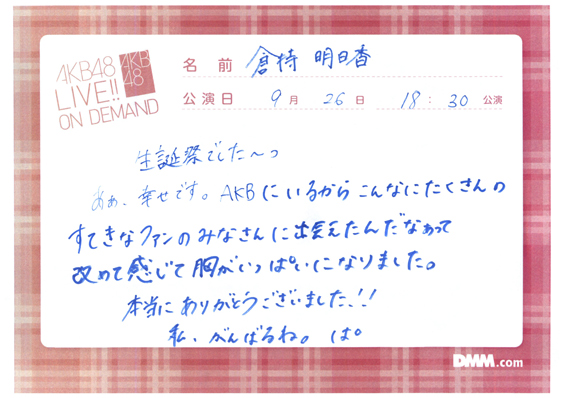 AKB48
LIVE!!
ON DEMAND
AKB
48
名 前 倉持 明日香
公演日 9月 26日 18:30 公演
生誕祭でした〜っ
あぁ、幸せです。AKBにいるからこんなにたくさんの
すてきなファンのみなさんに出会えたんだなぁって
改めて感じて胸がいっぱいになりました。
本当にありがとうございました!!
私、がんばるね。ぱ。
DMM.com